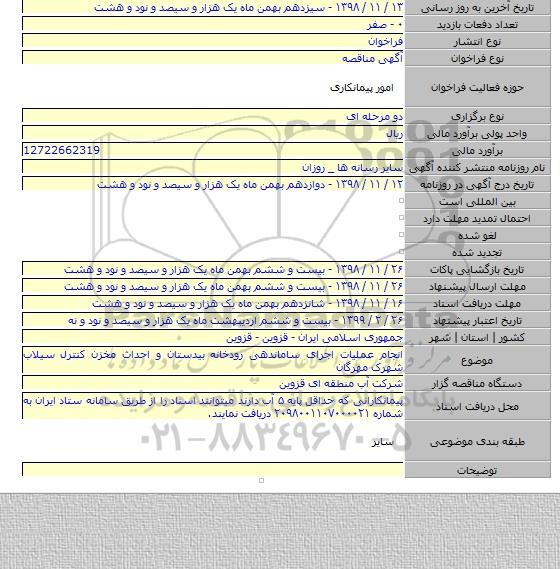 تاریخ آخرین به روز رسانی ۱۳ / ۱۱ / ۱۳۹۸ - سیزدهم بهمن ماه یک هزار و سیصد و نود و هشت
تعداد دفعات بازدید ۰ - صفر
نوع انتشار فراخوان
نوع فراخوان آگهی مناقصه
حوزه فعالیت فراخوان امور پیمانکاری
نوع برگزاری دو مرحله ای
واحد پولی برآورد مالی ریال
برآورد مالی 12722662319
نام روزنامه منتشر کننده آگهی سایر رسانه ها _ روزان
تاریخ درج آگهی در روزنامه ۱۲ / ۱۱ / ۱۳۹۸ - دوازدهم بهمن ماه یک هزار و سیصد و نود و هشت
بین المللی است
احتمال تمدید مهلت دارد
لغو شده
تجدید شده
تاریخ بازگشایی پاکات ۲۶ / ۱۱ / ۱۳۹۸ - بیست و ششم بهمن ماه یک هزار و سیصد و نود و هشت
مهلت ارسال پیشنهاد ۲۶ / ۱۱ / ۱۳۹۸ - بیست و ششم بهمن ماه یک هزار و سیصد و نود و هشت
مهلت دریافت اسناد ۱۶ / ۱۱ / ۱۳۹۸ - شانزدهم بهمن ماه یک هزار و سیصد و نود و هشت
تاریخ اعتبار پیشنهاد ۲۶ / ۲ / ۱۳۹۹ - بیست و ششم اردیبهشت ماه یک هزار و سیصد و نود و نه
کشور | استان | شهر جمهوری اسلامی ایران - قزوین - قزوین
موضوع انجام عملیات اجرای ساماندهی رودخانه بیدستان و احداث مخزن کنترل سیلاب
شهرک مهرگان
دستگاه مناقصه گزار شرکت آب منطقه ای قزوین
محل دریافت اسناد پیمانکارانی که حداقل پایه ۵ آب دارند میتوانند اسناد را از طریق سامانه ستاد ایران به
شماره ۲۰۹۸۰۰۱۱۰۷۰۰۰۰۲۱ دریافت نمایند.
طبقه بندی موضوعی سایر
توضیحات
۰۲۱-۸۸۳۴۹۶۷۰-۵